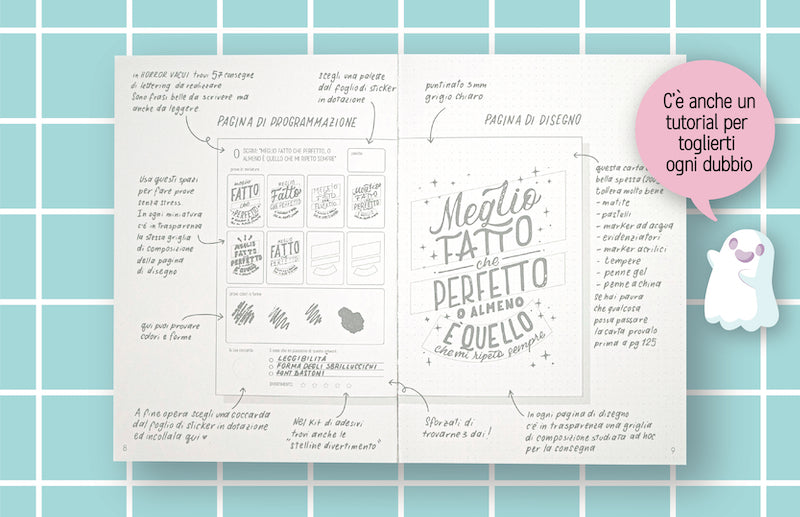 in HORROR VACUI trovi 57 consegne
di lettering da realizzare
Sono frasi belle da scrivere ma
anche da leggere
scegli una palette
dal foglio di sticker
in dotazione
puntinato 5mm
grigio chiaro
PAGINA DI PROGRAMMAZIONE
PAGINA DI DISEGNO
C'è anche un
tutorial per
toglierti
ogni dubbio
0 SCRIVI: "MEGLIO FATTO CHE PERFETTO, O
ALMENO È QUELLO CHE MI RIPETO SEMPRE"
Usa questi spazi
per fare prove
senza stress.
In ogni miniatura
c'è in trasparenza
la stessa griglia
di composizione
della pagina
di disegno
MEGLIO
FATTO
che
PERFETTO
Meglio
FATTO
che
PERFETTO
O ALMENO
È QUELLO
che mi ripeto sempre
questa carta
bella spessa
tollera molto bene
- matite
- pastelli
- marker ad acqua
- evidenziatori
- marker acrilici
- tempere
- penne gel
- penne a china
se hai paura
che qualcosa
possa passare
la carta provalo
prima a pg 125
qui puoi provare
colori e forme
LEGGIBILITÀ
FORMA DEGLI SBRILLUSCICHI
FONT BASTONI
A fine opera scegli una coccarda
dal foglio di sticker in dotazione
ed incollala qui ♥
Nel Kit di adesivi
trovi anche le
"stelline divertimento"
Sforzati di
trovarne 3 dai!
In ogni pagina di disegno
c'è in trasparenza una griglia
di composizione studiata ad hoc
per la consegna
8
9